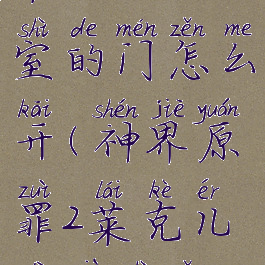 shì de mén zěn me
室的门怎么
kāi shén jiè yuán
开(神界原
zuì lái kè ér
罪2莱克儿